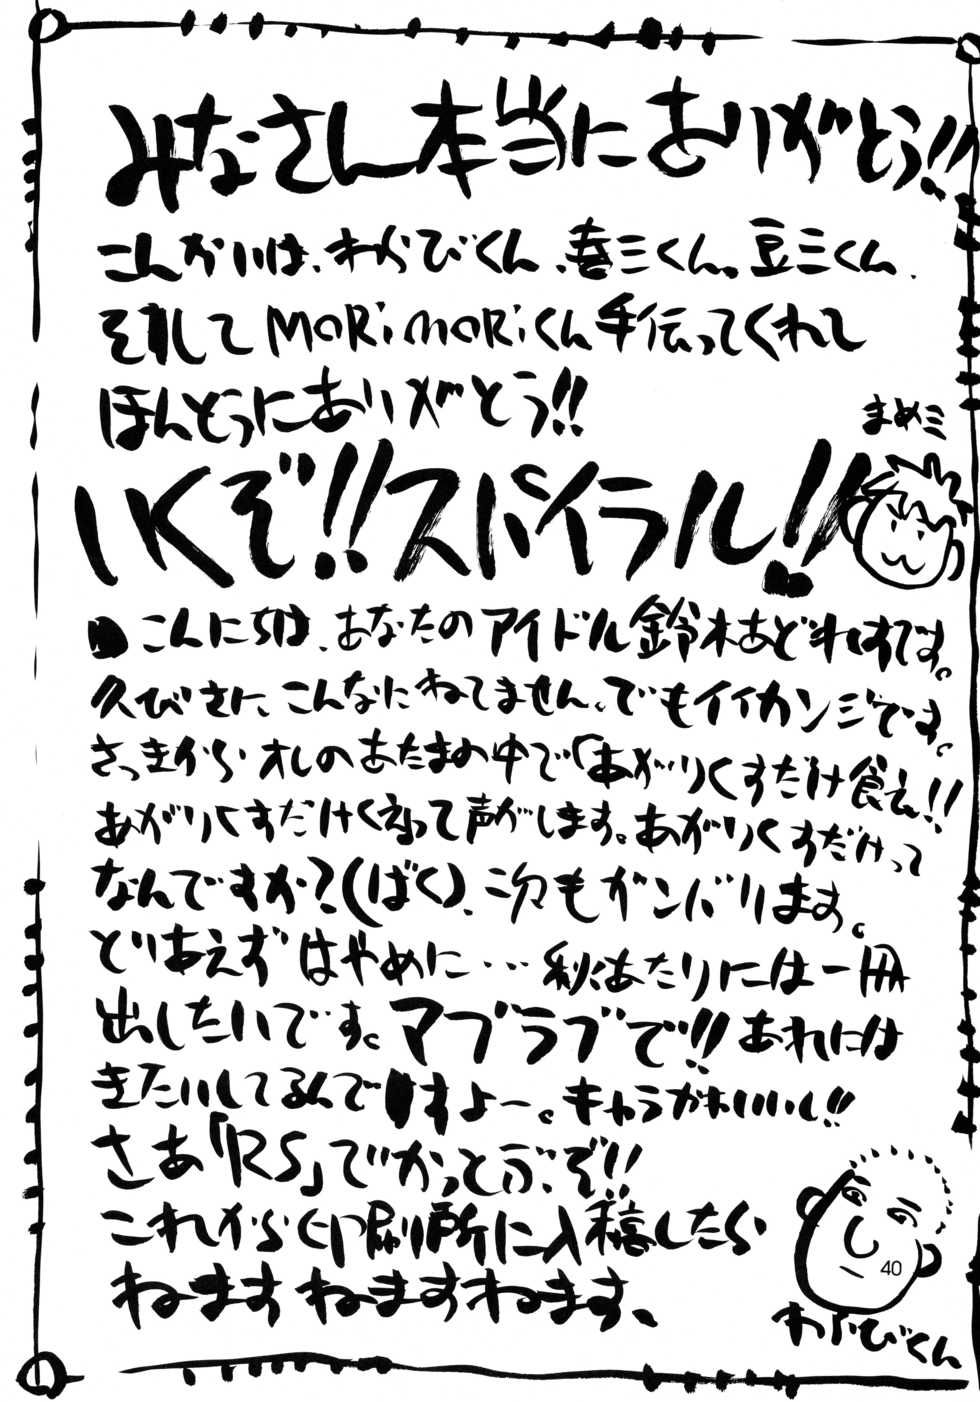 みなさん本当にありがとう!!
こんかいは、わらびくん、喜三くん。豆三くん、
そして MORiMORiくん手伝ってくれて
ほんとうにありがとう!!
まめ三
いくぞ!!スパイラル!!
こんにちは、あなたのアイドル鈴木あどれすです。
久びさに、こんなにねてません、でもイイカンジです。
さっきからオレのあたまの中で「あがりくすだけ食え!!
あがりくすだけくえって声がします。あがりくすだけって
なんですか?(ばく)、次もガンバリます。
とりあえずはやめに…秋あたりには一冊
出したいです。マブラブで!!あれには
きたいしてるんですよー。キャラかわいいし!!
さあ「RS」でかっとぶぞ!!
これから印刷所に入稿したら
ねますねますねます、
40
わらびくん